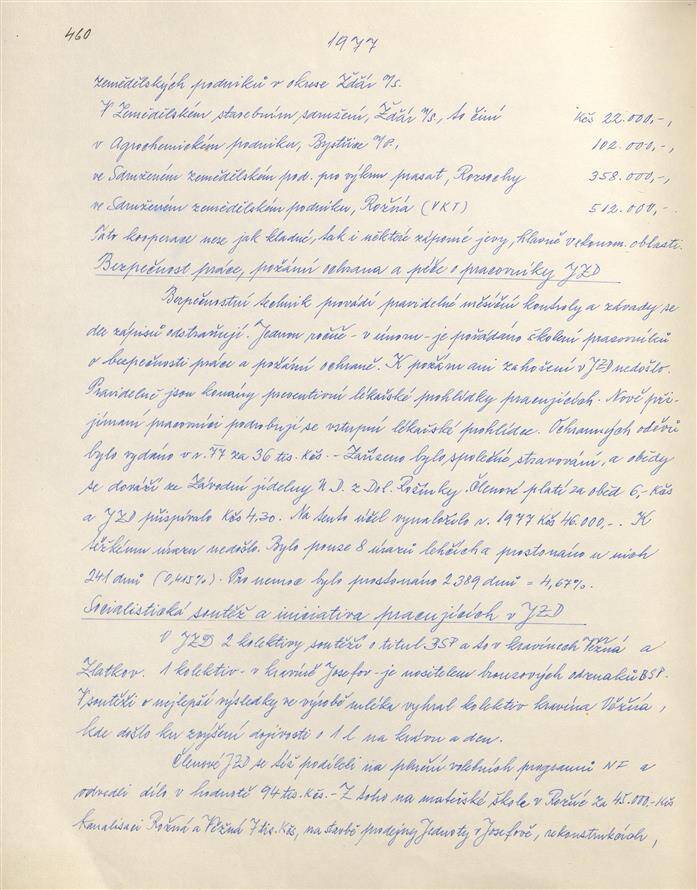 460
1977
zemědělských podniků v okrese Žďár n/S.
V Zemědělském stavebním sdružení, Žďár n/S., to činí Kčs 22.000,-,
v Agrochemickém podniku, Bystřice n/P., 102.000,-,
ve Sdruženém zemědělském pod. pro výkrm prasat, Rozsochy 358.000,-,
ve Sdruženém zemědělském podniku, Rožná (VKT) 512.000,-.
Tato kooperace nese jak kladné, tak i některé záporné jevy, hlavně v ekonom. oblasti.
Bezpečnost práce, požární ochrana a péče o pracovníky JZD
Bezpečnostní technik provádí pravidelné měsíční kontroly a závady se
dle zápisů odstraňují. Jednou ročně - v únoru - je pořádáno školení pracovníků
o bezpečnosti práce a požární ochraně. K požáru ani zahoření v JZD nedošlo.
Pravidelně jsou konány preventivní lékařské prohlídky pracujících. Nově při-
jímaní pracovníci podrobují se vstupní lékařské prohlídce. Ochranných oděvů
bylo vydáno v r. 77 za 36 tis. Kčs. - Zařízeno bylo společné stravování, a obědy
se dováží ze Závodní jídelny U.D. z Dol. Rožínky. Členové platí za oběd 6,- Kčs
a JZD přispívalo Kčs 4.30. Na tento účel vynaložilo v r. 1977 Kčs 46.000,-. K
těžkému úrazu nedošlo. Bylo pouze 8 úrazů lehčích a prostonáno u nich
241 dnů (0,415%). Pro nemoce bylo prostonáno 2389 dnů = 4,67%.
Socialistická soutěž a iniciativa pracujících v JZD
V JZD 2 kolektivy soutěží o titul BSP a to v kravínech Věžná a
Zlatkov. 1 kolektiv - v kravíně Josefov - je nositelem bronzových odznaků BSP.
V soutěži o nejlepší výsledky ve výrobě mléka vyhrál kolektiv kravína Věžná,
kde došlo ku zvýšení dojivosti o 1 l na krávu a den.
Členové JZD se též podíleli na plnění volebních programů NF a
odvedli dílo v hodnotě 94 tis. Kčs. - Z toho na mateřské škole v Rožné za 45.000,- Kčs
kanalisaci Rožná a Věžná 7 tis. Kčs, na stavbě prodejny Jednoty v Josefově, rekonstrukcích,